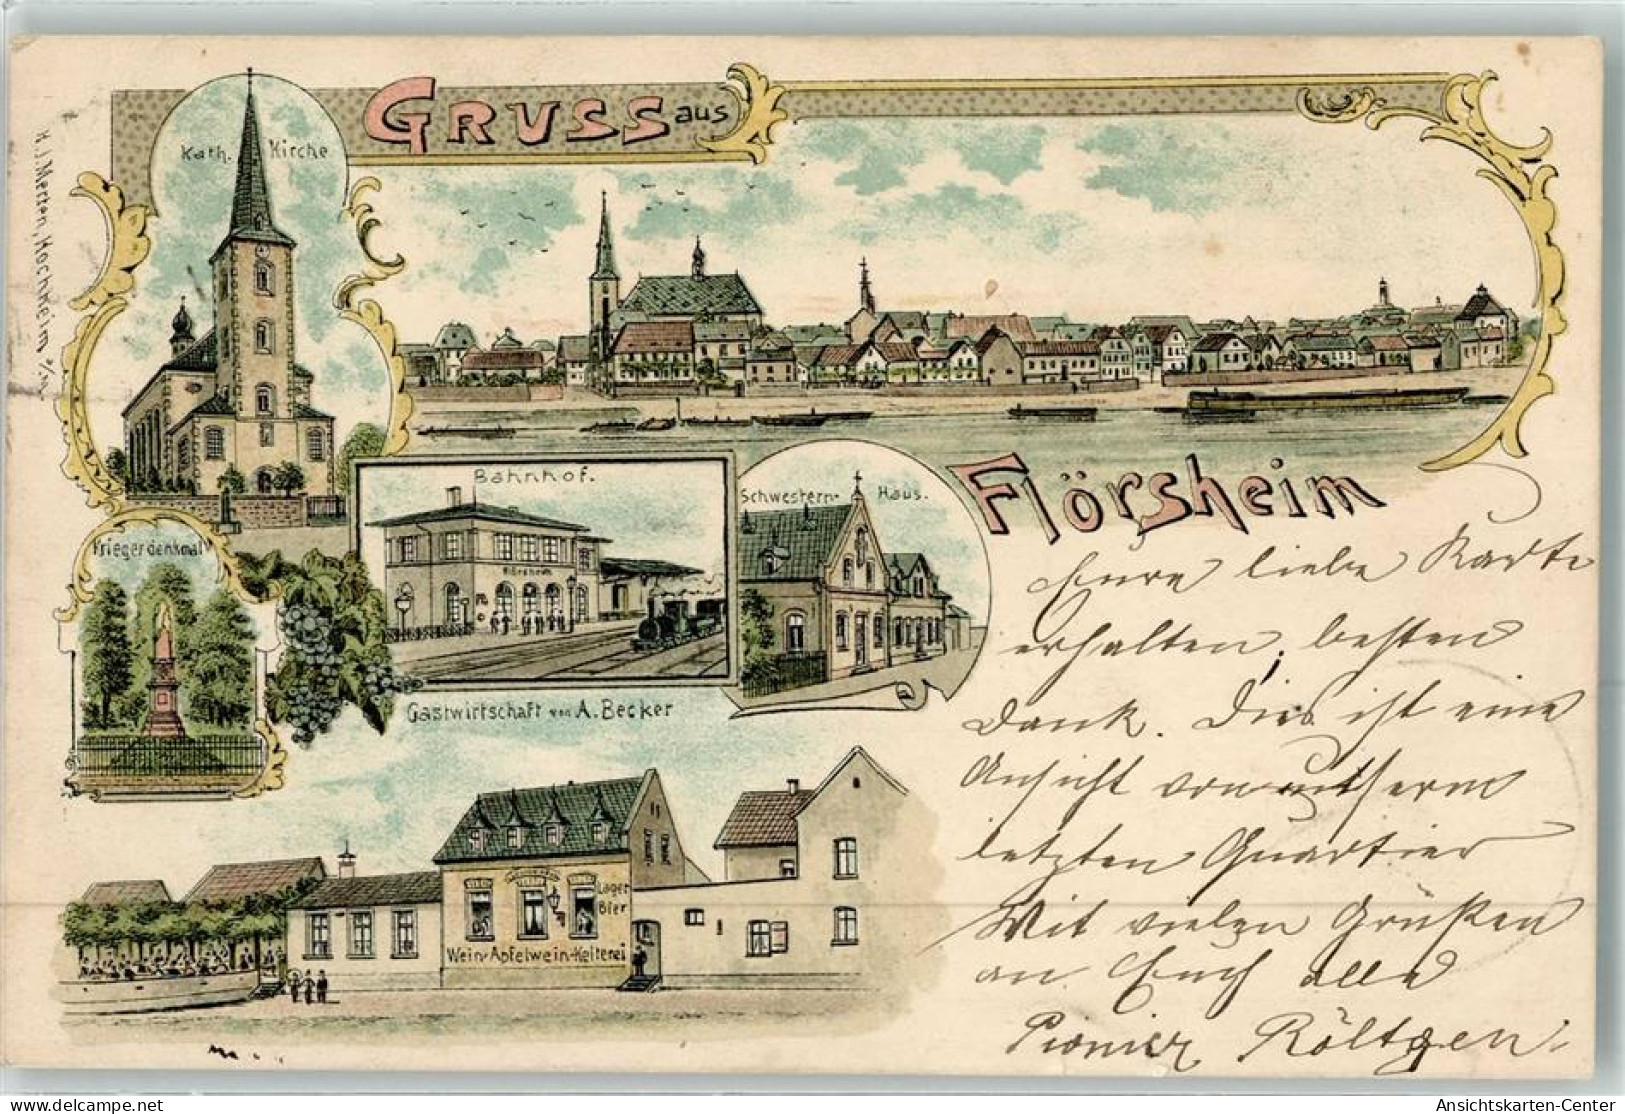 GRUSS aus
Kath. Kirche
H. J. Merten, Hochheim a/M.
Flörsheim
Bahnhof.
Flörsheim
Schwestern-Haus.
Kriegerdenkmal
Gastwirtschaft von A. Becker
Lager
Bier
Wein-Apfelwein-Kelterei
Eure liebe Karte
erhalten, besten
Dank. Dies ist eine
Ansicht von unserm
letzten Quartier
Mit vielen Grüßen
an Euch alle
Pionier Röltgen.
delcampe.net
Ansichtskarten-Center